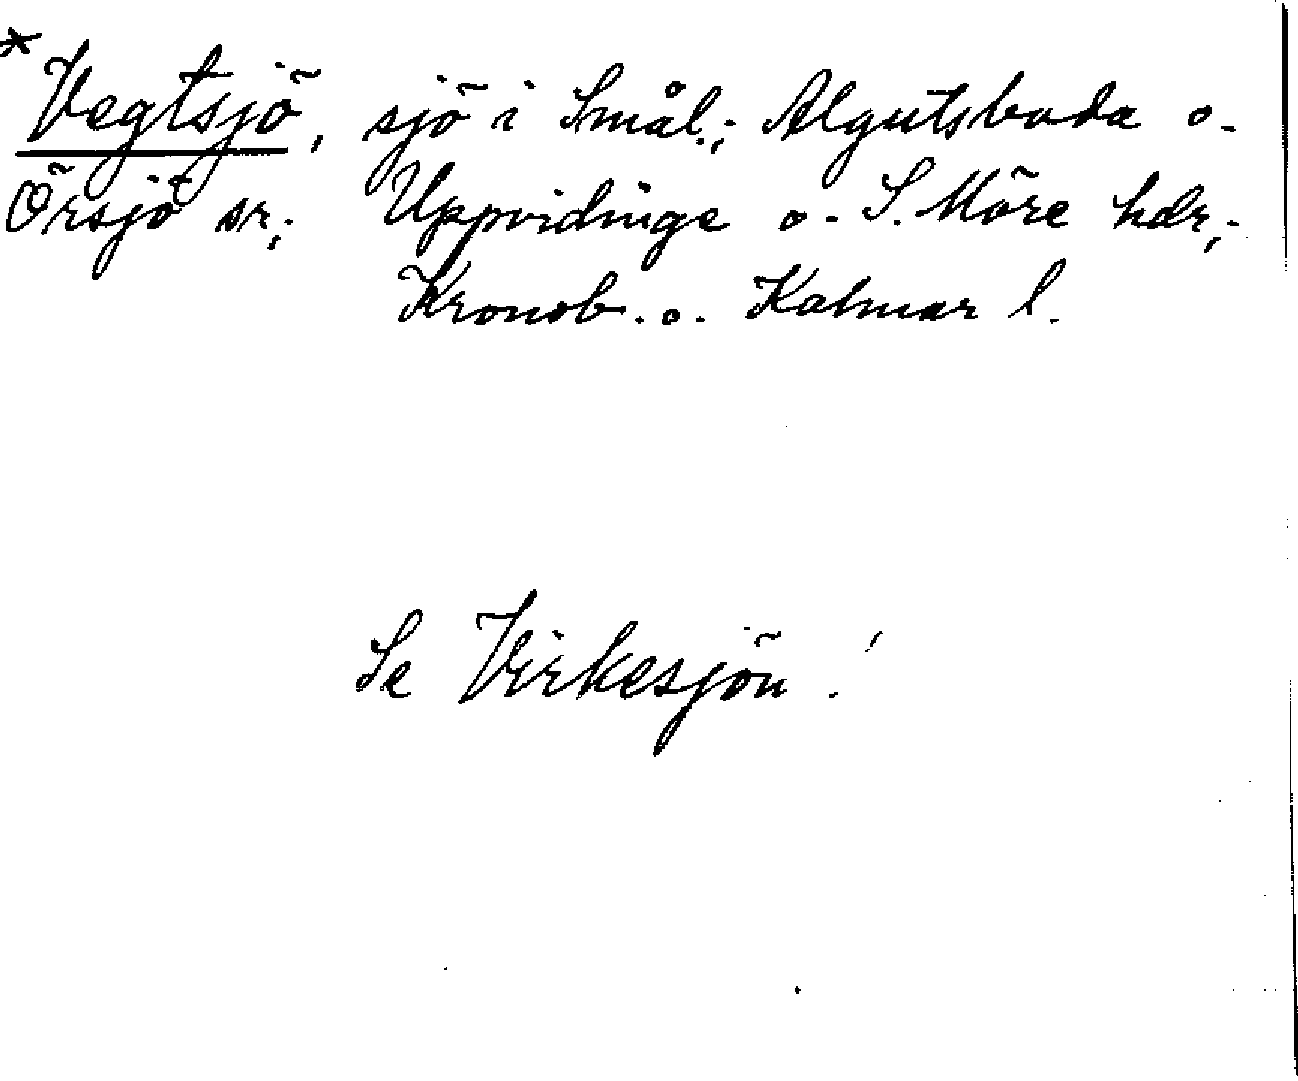 *Vegtsjö, sjö i Smål.; Algutsboda o.
Örsjö sr; Uppvidinge o. S. Möre hdr;
Kronob. o. Kalmar l.
Se Virkesjön!